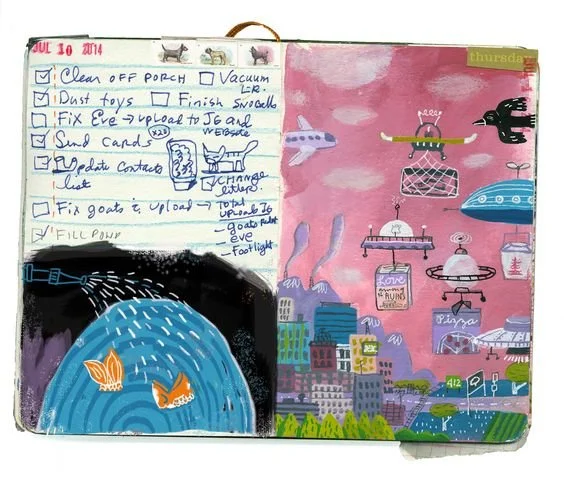 JUL 10 2014
Clear OFF PORCH
Vacuum L.R.
Dust toys
Finish SNOBALLS
Fix Eve → upload to JG and WEBSITE
Send cards x20
Update Contacts list
CHANGE litter.
Fix goats & upload →
Total uploads JG
– goats
– eve
– Footlight
FILL POND
thursday
Love among the RUINS
Pizza
412